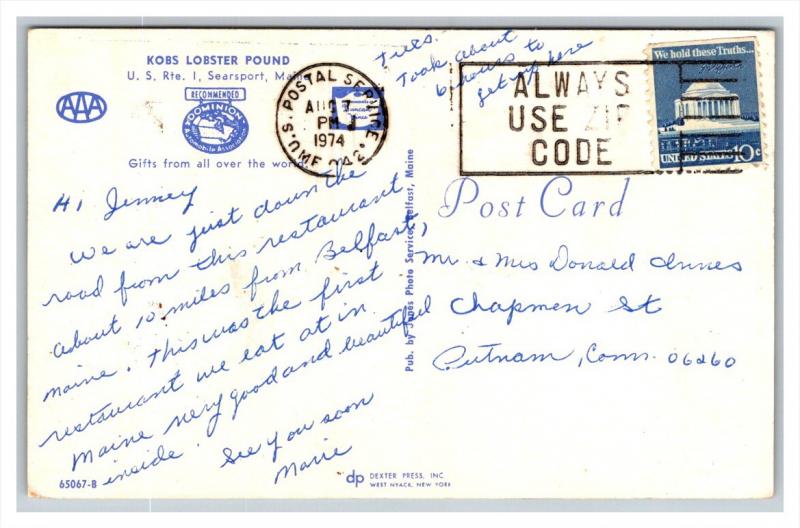 KOBS LOBSTER POUND
U. S. Rte. 1, Searsport, Maine
AAA
RECOMMENDED
DOMINION
Automobile Association
Gifts from all over the world.
Tues.
Took about
6 hours to
get up here
U.S. POSTAL SERVICE,
AUG 7
PM
1974
ME
ALWAYS
USE ZIP
CODE
We hold these Truths...
UNITED STATES 10c
Hi Jenney
We are just down the
road from this restaurant
about 10 miles from Belfast,
Maine. This was the first
restaurant we eat at in
Maine very good and beautiful
inside. See you soon
Marie
Pub. by Jones Photo Service, Belfast, Maine
Post Card
Mr & Mrs Donald Innes
Chapmen St
Putnam, Conn. 06260
65067-B
dp DEXTER PRESS, INC
WEST NYACK, NEW YORK